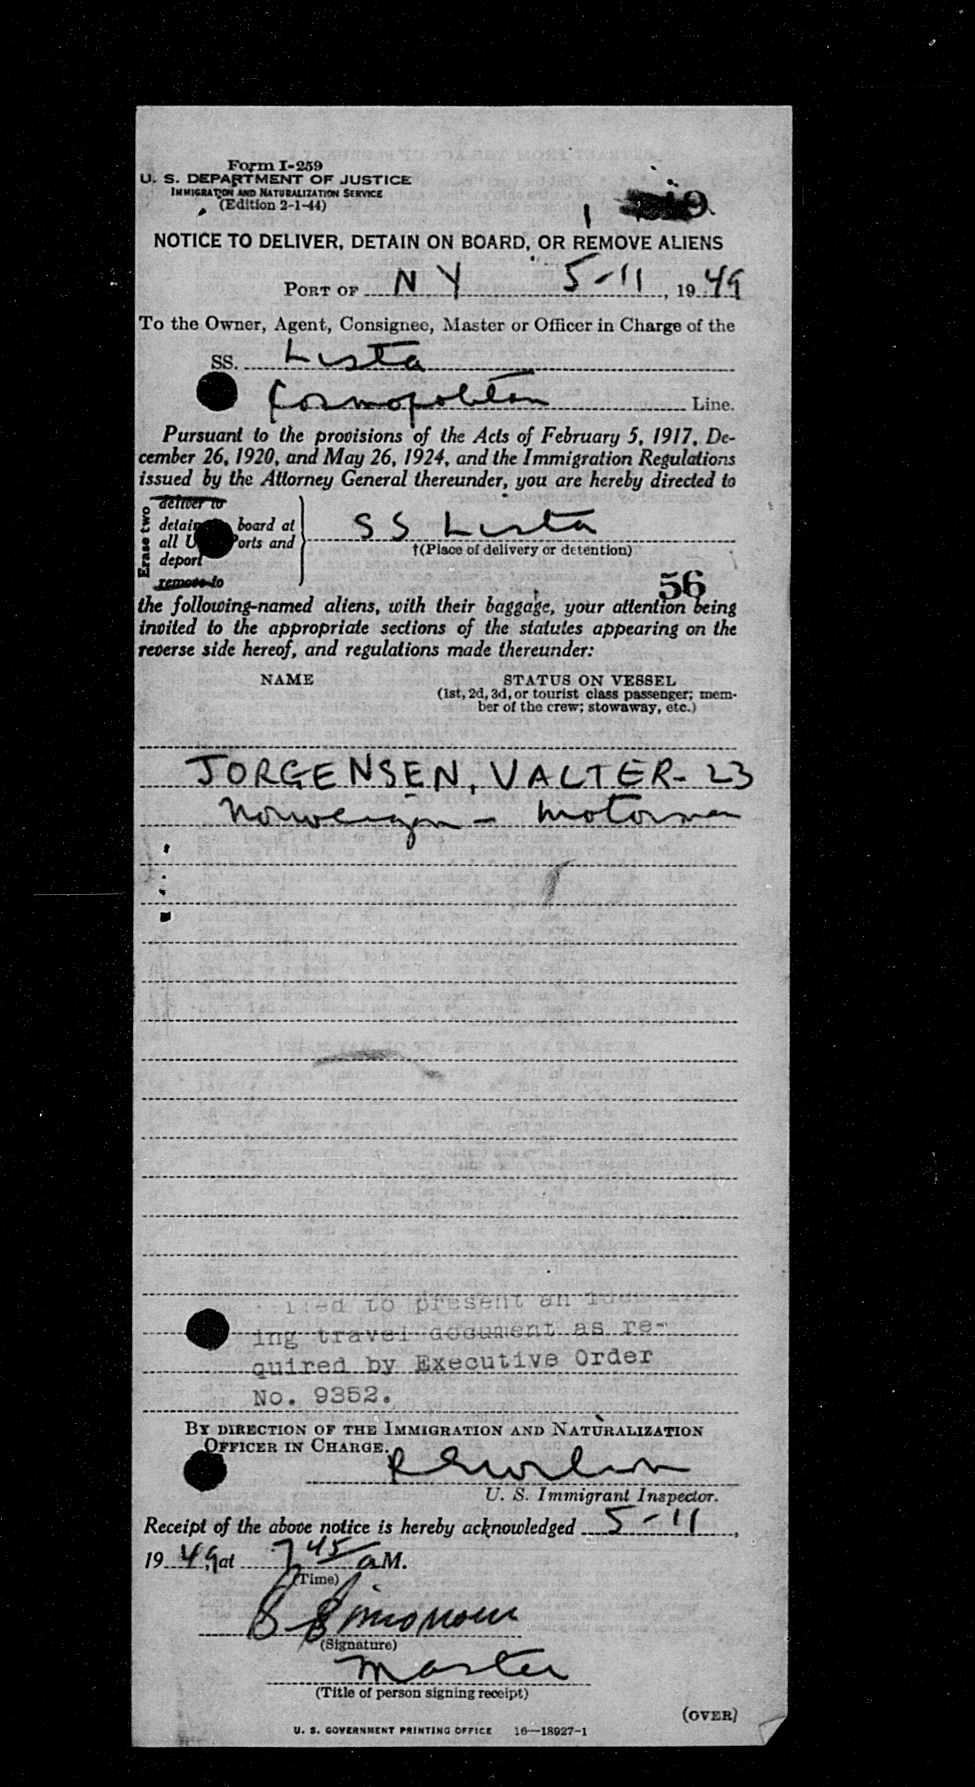 Form I-259
U. S. DEPARTMENT OF JUSTICE
IMMIGRATION AND NATURALIZATION SERVICE
(Edition 2-1-44)
1
NOTICE TO DELIVER, DETAIN ON BOARD, OR REMOVE ALIENS
PORT OF NY 5-11, 1949
To the Owner, Agent, Consignee, Master or Officer in Charge of the
SS. Lista
Cosmopolitan Line.
Pursuant to the provisions of the Acts of February 5, 1917, De-
cember 26, 1920, and May 26, 1924, and the Immigration Regulations
issued by the Attorney General thereunder, you are hereby directed to
Erase two
deliver to
detain board at
all U Ports and
deport
remove to
SS Lista
†(Place of delivery or detention)
56
the following-named aliens, with their baggage, your attention being
invited to the appropriate sections of the statutes appearing on the
reverse side hereof, and regulations made thereunder:
NAME STATUS ON VESSEL
(1st, 2d, 3d, or tourist class passenger; mem-
ber of the crew; stowaway, etc.)
JORGENSEN, VALTER - 23
Norwegian - motorman
to present an
ing travel document as re-
quired by Executive Order
No. 9352.
BY DIRECTION OF THE IMMIGRATION AND NATURALIZATION
OFFICER IN CHARGE.
U. S. Immigrant Inspector.
Receipt of the above notice is hereby acknowledged 5-11,
1949, at 7 45 a M.
(Time)
(Signature)
Master
(Title of person signing receipt)
(OVER)
U. S. GOVERNMENT PRINTING OFFICE 16—18927-1